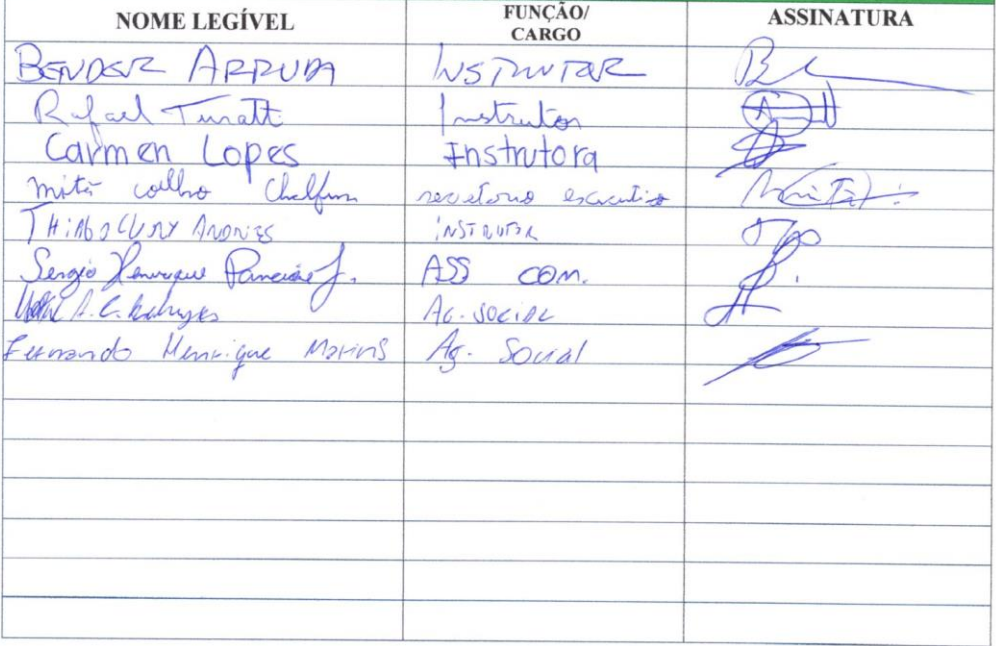 NOME LEGÍVEL FUNÇÃO/ CARGO ASSINATURA
BENDER ARRUDA INSTRUTOR
Rafael Turatti Instrutor
Carmen Lopes Instrutora
mitã coelho secretario executivo
THIAGO CURY ANDRIES INSTRUTOR
Sergio Henrique ASS COM.
A.C. AG. SOCIAL
Fernando Henrique Marins Ag. Social